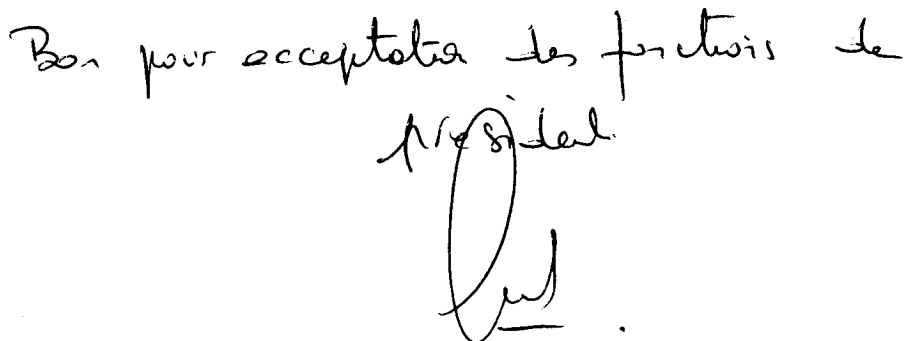 Bon pour acceptation des fonctions de
président.